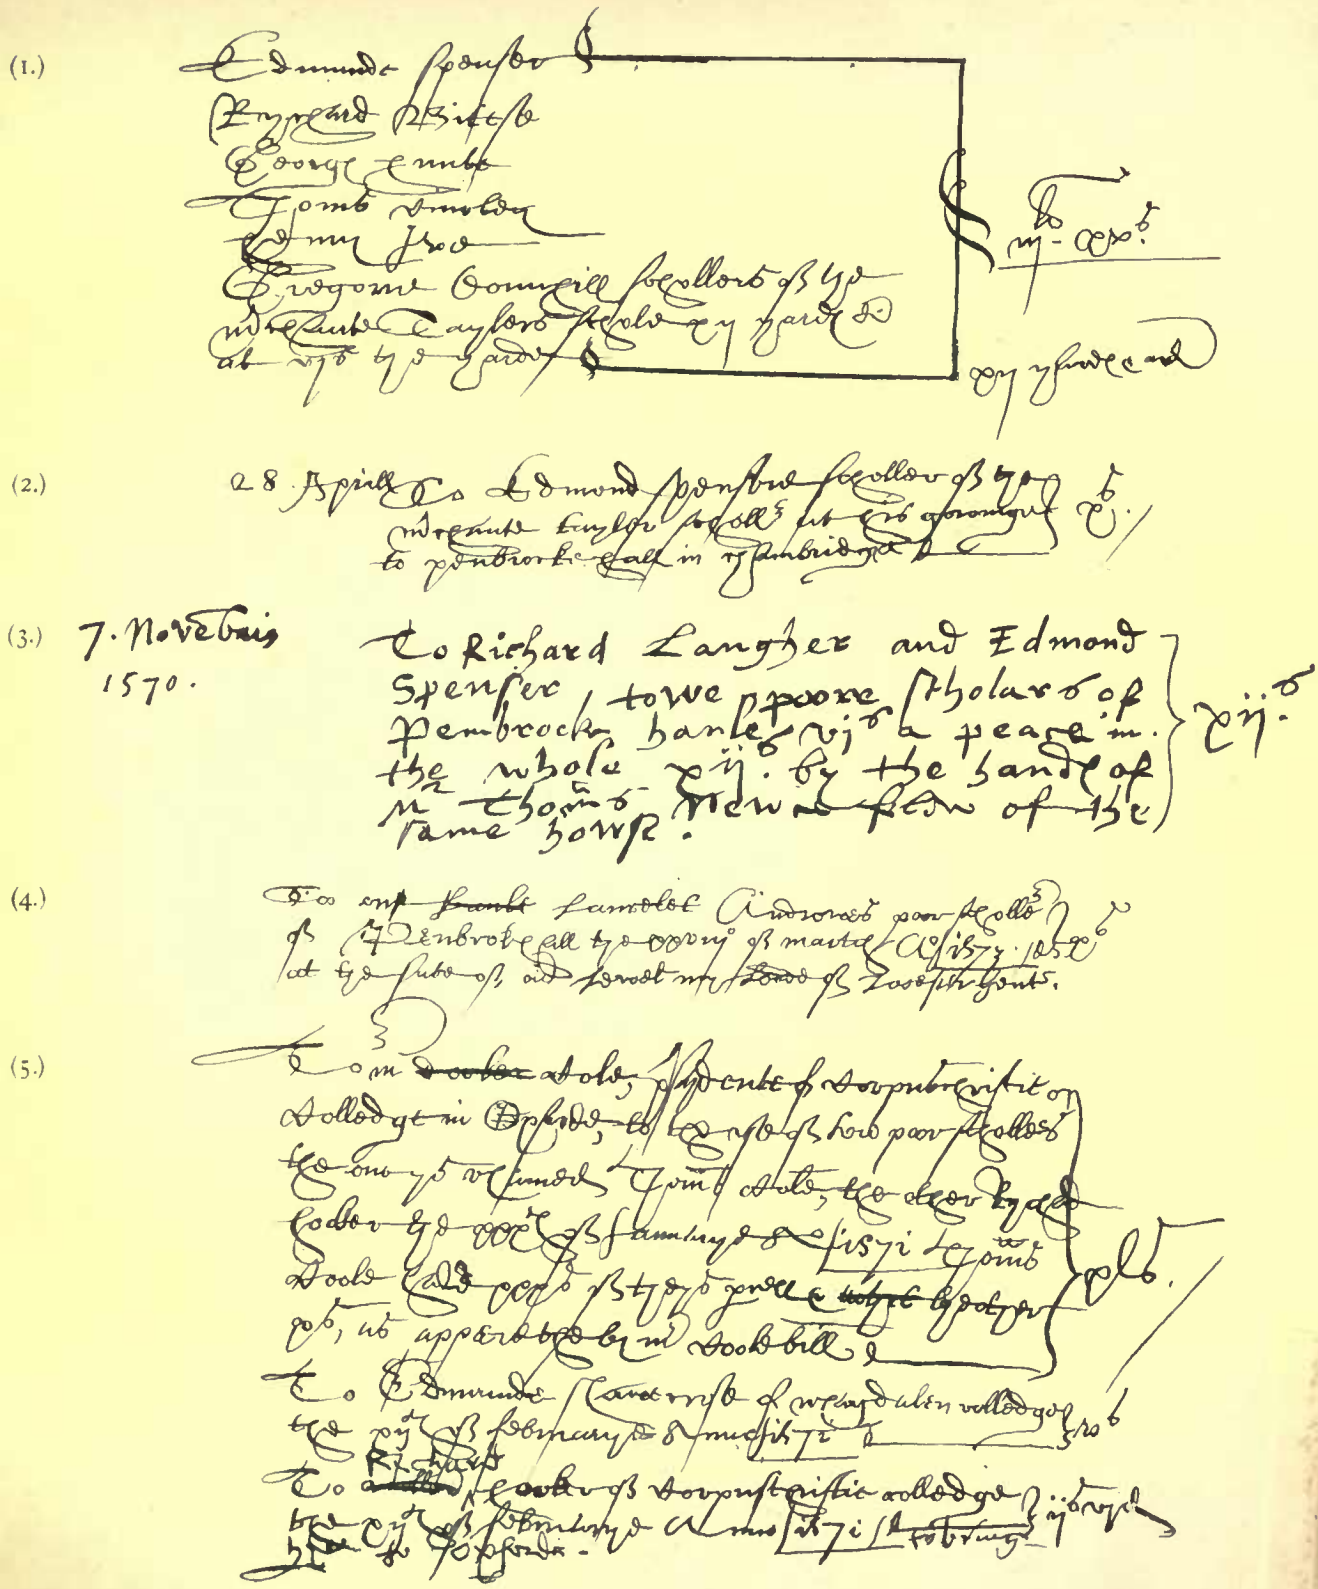 (1.)
Edmunde Spenser
Rychard
George hunte
Thoms
henry Ive
Gregorie Downhill schollers of the
mchante Taylers schole xij yardes di
at vjs the yarde
iijli xvs.
xij yardes
(2.)
28 Aprill To Edmond spensore scholler of the
mchante tayler scholl at his gowinge
to penbrocke hall in chambridge
xs.
(3.)
7. Novēbris
1570.
To Richard Langher and Edmond
Spenser, towe poore scholars of
Pembrock haule vjs a peace in
the whole xijs. by the handes of
Mr Thoms Newce felow of the
same howse.
xijs
(4.)
To one Lancelet Androwes poor scholle
of Penbrok hall the of march Ao 1573
at the sute of my of gent.
(5.)
To m Cole, psydente of Corpuschristie
Colledge in Oxforde, to the use of tow poor scholles
the one ys named Thoms Cole, the other Rychard
hooker the xxxth of Januarye Ao 1571 Thoms
Coole hade xxxs of theys the other
xs, as apperethe by m Coole bill
xls.
To Edmunde of Magdalen colledge
the xijth of februarye Anno 1571
vs
Richard
To hooker of Corpuschristie colledge
the xijth of februarye Anno 1571 to bringe
to Oxforde.
ijs vjd